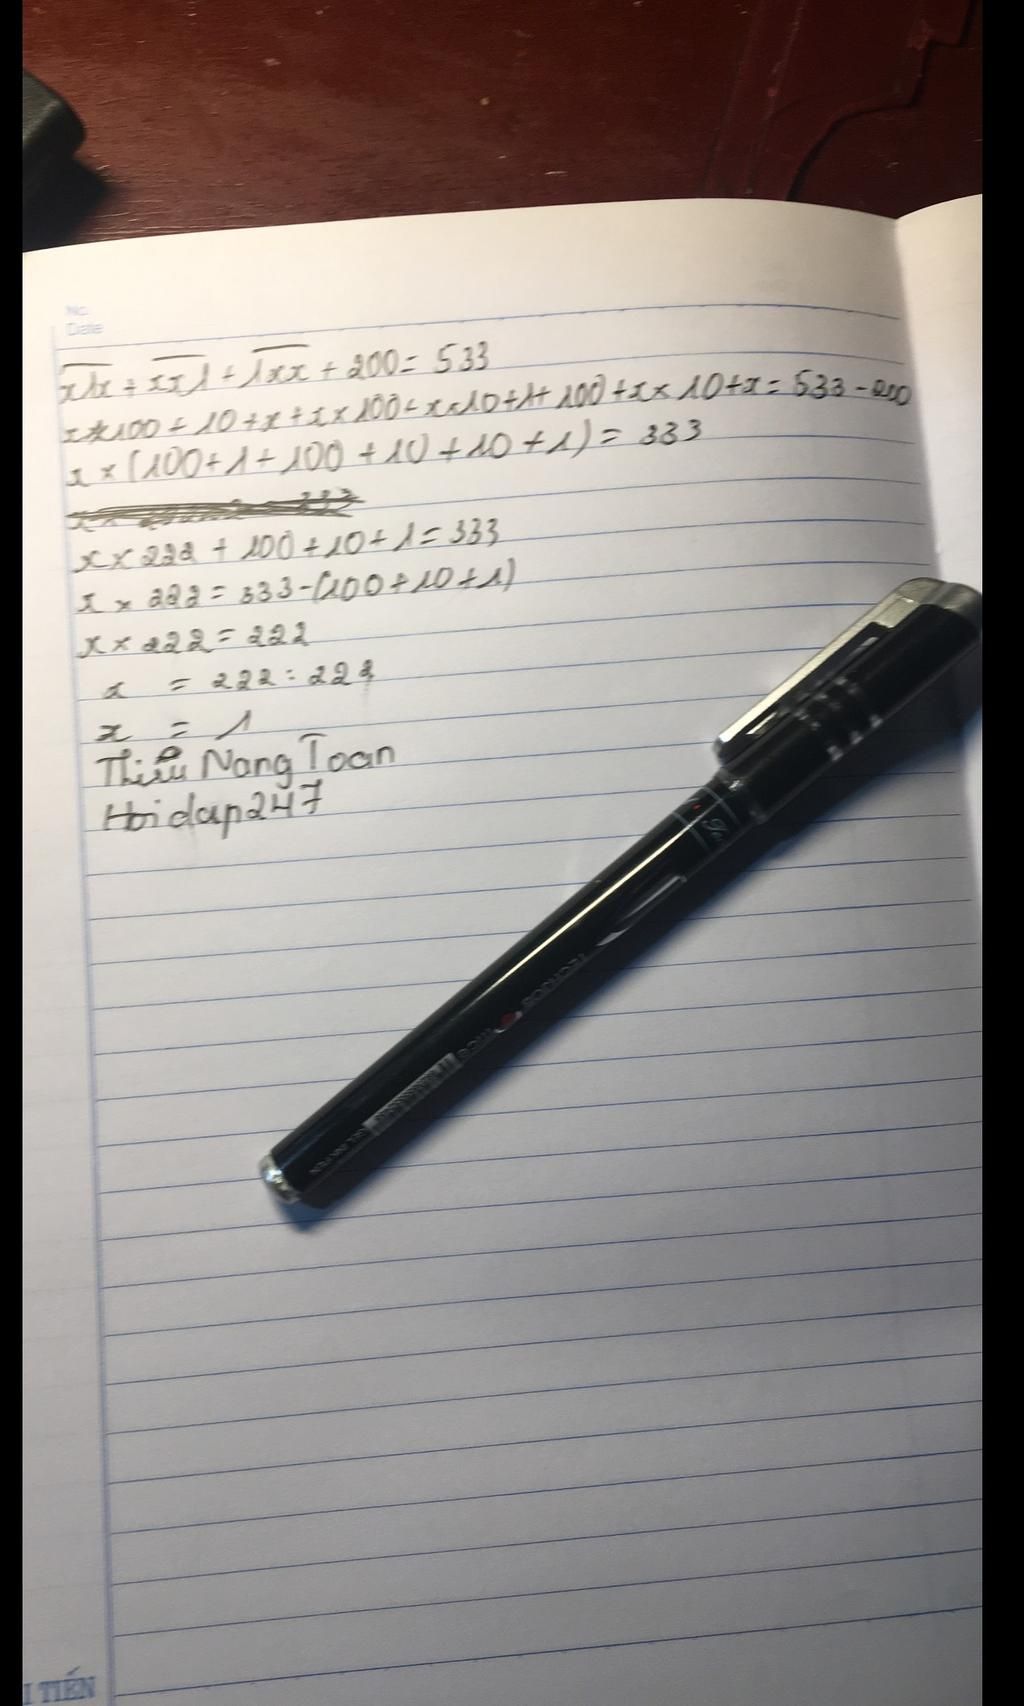 No.
Date
x1x + xx1 + 1xx + 200 = 533
x x 100 + 10 + x + x x 100 + x x 10 + 1 + 100 + x x 10 + x = 533 - 200
x x (100 + 1 + 100 + 10 + 10 + 1) = 333
x x 222 + 100 + 10 + 1 = 333
x x 222 = 333 - (100 + 10 + 1)
x x 222 = 222
x = 222 : 222
x = 1
Thiểu Nang Toan
Hoidap247
TIẾN